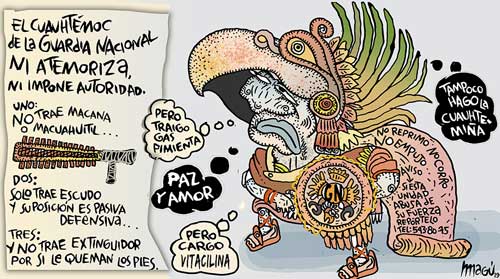 EL CUAUHTÉMOC
DE LA GUARDIA NACIONAL
NI ATEMORIZA,
NI IMPONE AUTORIDAD.
UNO:
NO TRAE MACANA
O MACUAHUITL...
DOS:
SOLO TRAE ESCUDO
Y SU POSICIÓN ES PASIVA
DEFENSIVA...
TRES:
Y NO TRAE EXTINGUIDOR
POR SI LE QUEMAN LOS PIES.
PERO
TRAIGO
GAS
PIMIENTA
PAZ
Y AMOR
PERO
CARGO
VITACILINA
TAMPOCO
HAGO LA
CUAUHTE-
MIÑA
GN
NO REPRIMO NO GOLPEO
NO EMPUJO
SI ESTA
UNIDAD
ABUSA DE
SU FUERZA
REPÓRTELO
TEL:
magú